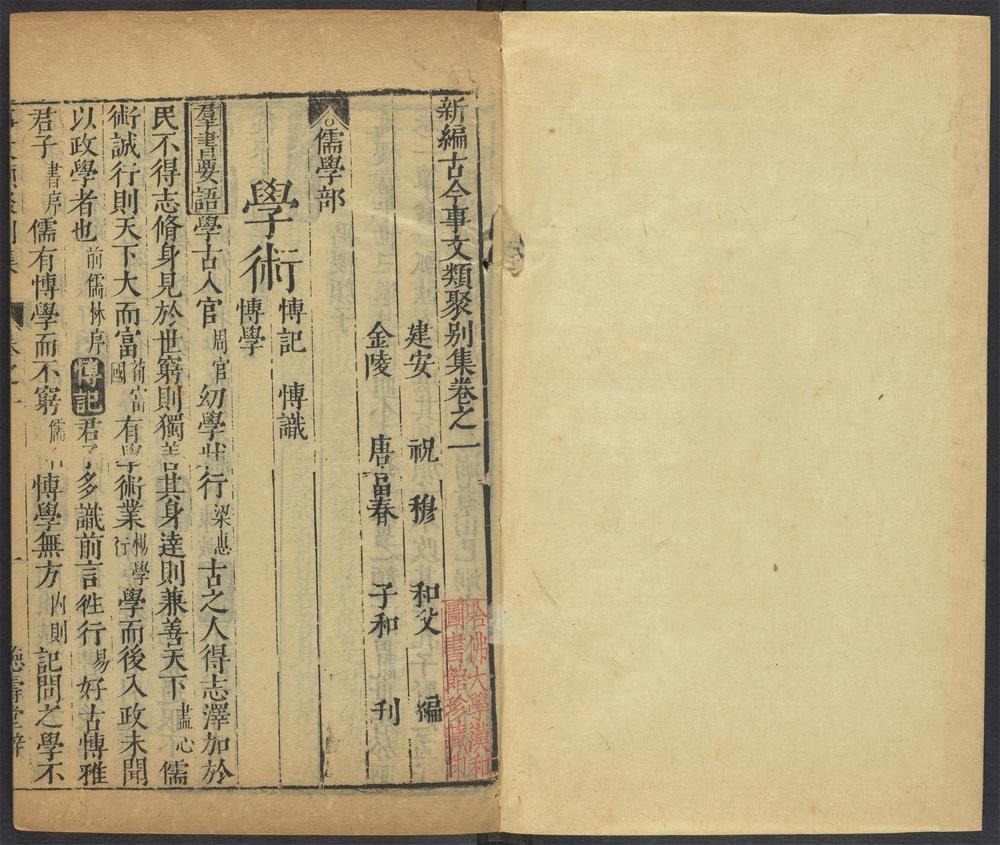 新編古今事文類聚别集卷之一
建安 祝 穆 和父 編
金陵 唐富春 子和 刊
儒學部
學術 博記 博識
博學
羣書要語學古入官周官幼學壯行梁惠古之人得志澤加於
民不得志脩身見於世窮則獨善其身達則兼善天下盡心儒
術誠行則天下大而富前富國有學術業楊學行學而後入政未聞
以政學者也前儒林序博記君子多識前言徃行易好古博雅
君子書序儒有博學而不窮儒行博學無方內則記問之學不
卷之一 一 德壽堂梓
哈佛大學漢和
圖書館珍藏印